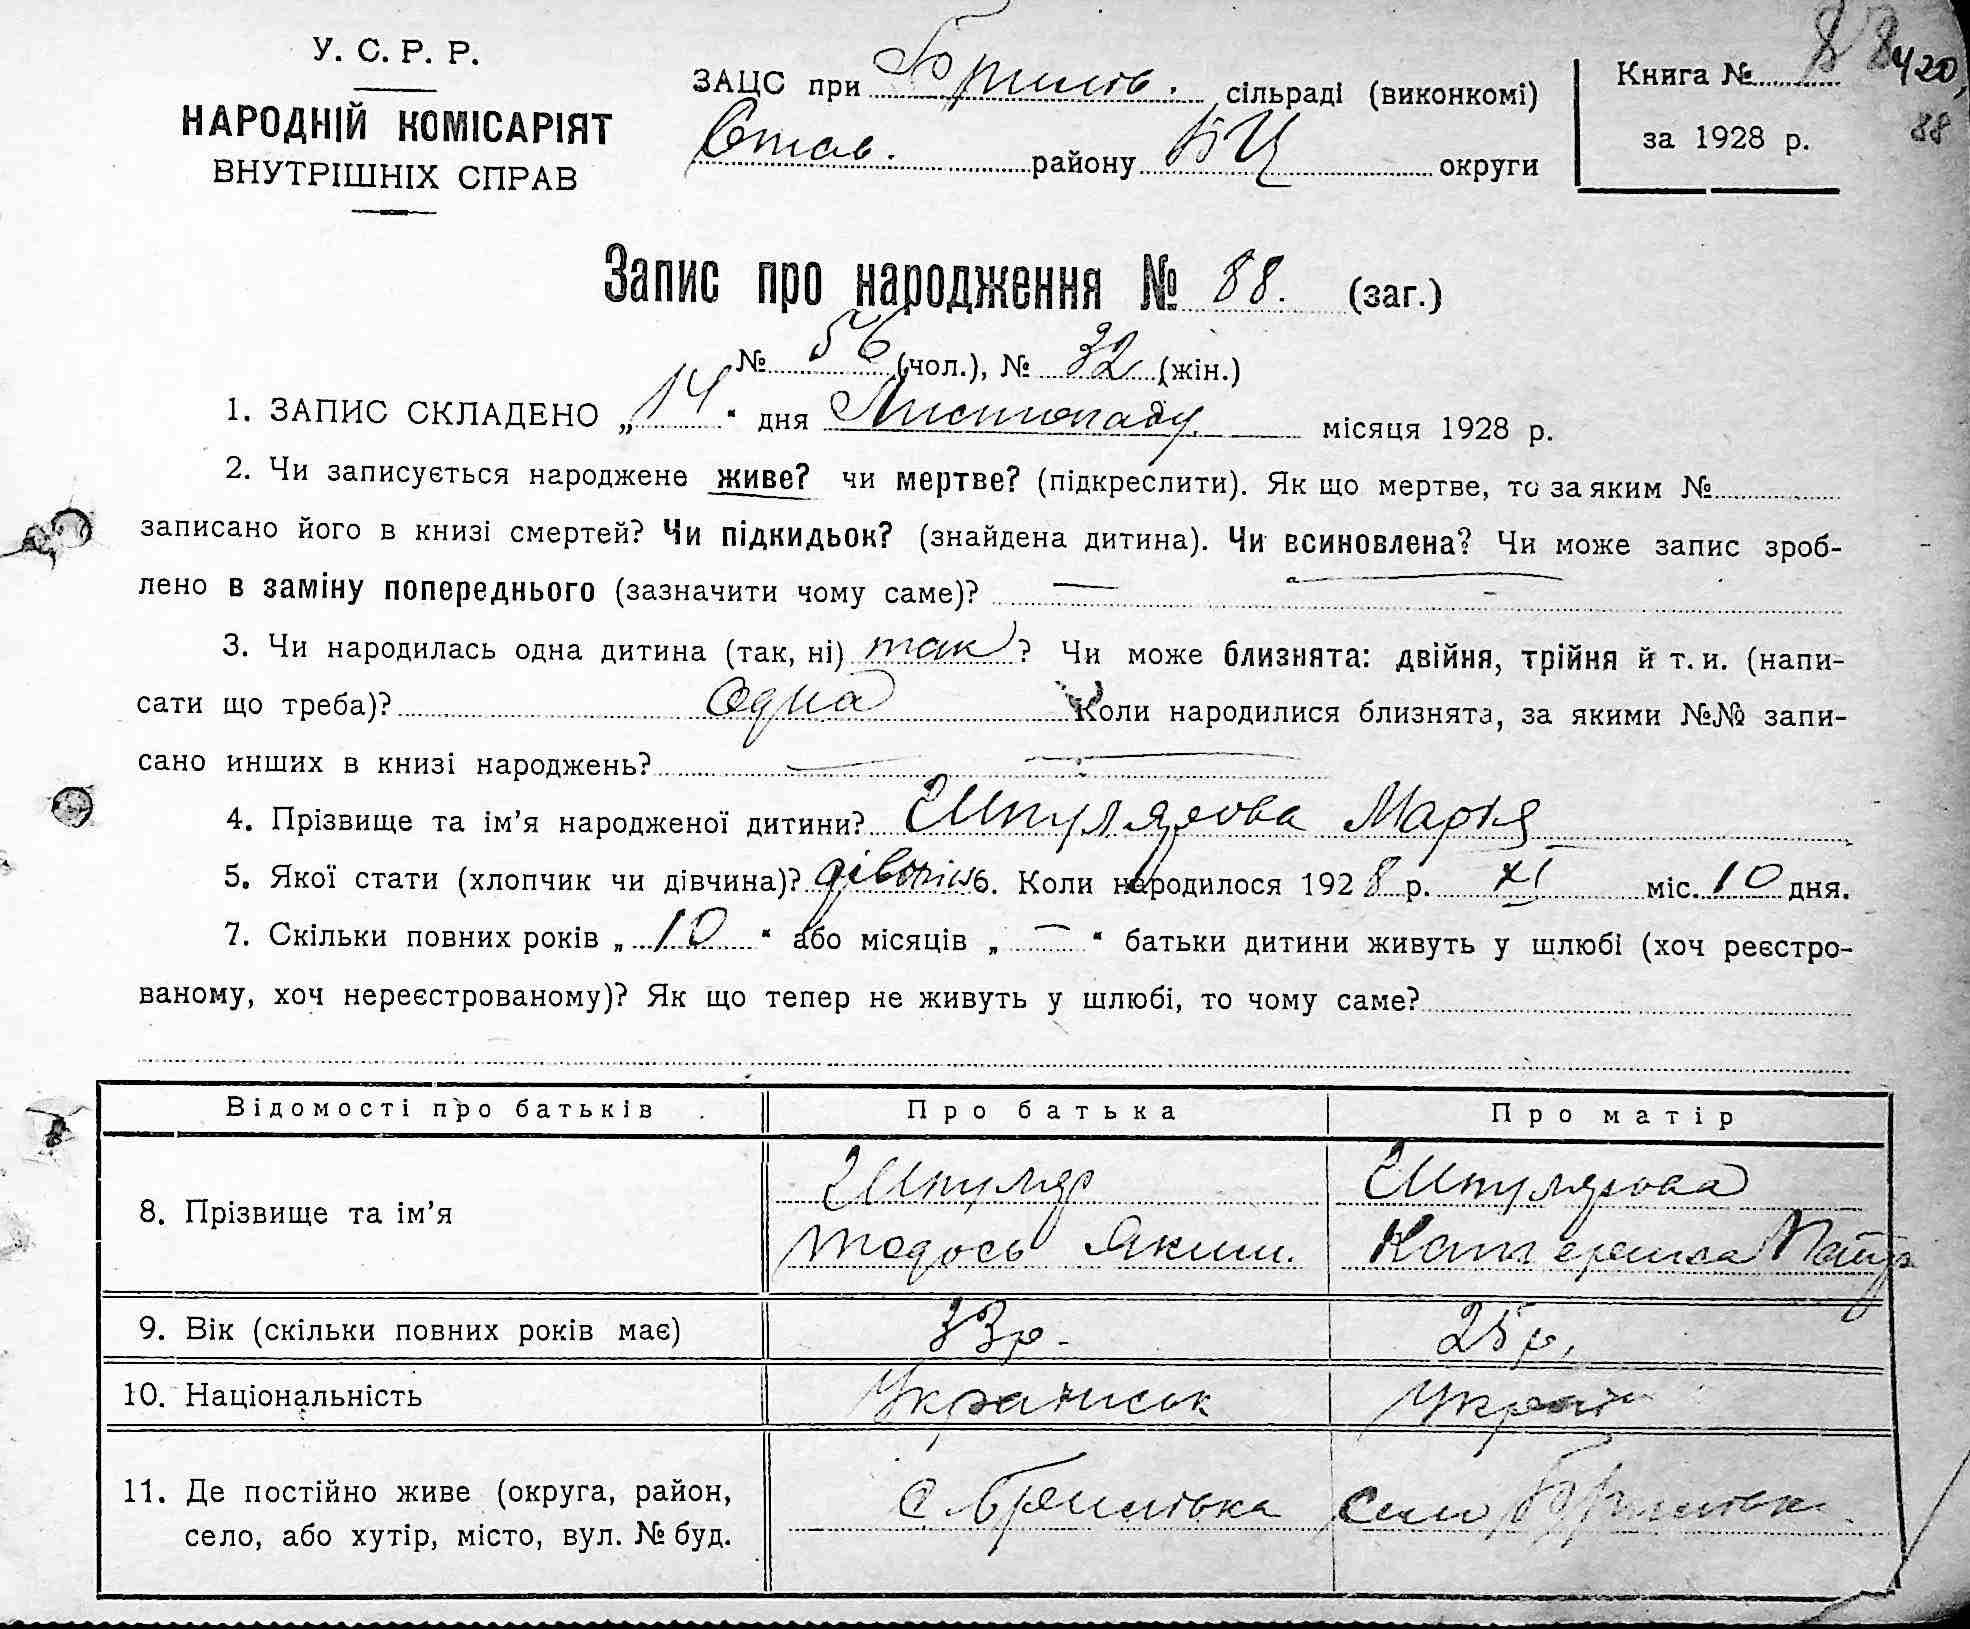 У. С. Р. Р.
НАРОДНІЙ КОМІСАРІЯТ
ВНУТРІШНІХ СПРАВ
ЗАЦС при сільраді (виконкомі)
Став. району БЦ округи
Книга № 88
за 1928 р.
420,
88
Запис про народження № 88. (заг.)
№ 56 (чол.), № 32 (жін.)
1. ЗАПИС СКЛАДЕНО „14“ дня Листопаду місяця 1928 р.
2. Чи записується народжене живе? чи мертве? (підкреслити). Як що мертве, то за яким №
записано його в книзі смертей? Чи підкидьок? (знайдена дитина). Чи всиновлена? Чи може запис зроб-
лено в заміну попереднього (зазначити чому саме)? —
3. Чи народилась одна дитина (так, ні) так? Чи може близнята: двійня, трійня й т. и. (напи-
сати що треба)? Одна Коли народилися близнята, за якими №№ запи-
сано инших в книзі народжень? —
4. Прізвище та ім’я народженої дитини? Шпулярова Марія
5. Якої стати (хлопчик чи дівчина)? дівчин 6. Коли народилося 1928 р. XI міс. 10 дня.
7. Скільки повних років „10“ або місяців „—“ батьки дитини живуть у шлюбі (хоч реєстро-
ваному, хоч нереєстрованому)? Як що тепер не живуть у шлюбі, то чому саме?
Відомості про батьків Про батька Про матір
8. Прізвище та ім’я Шпуляр Шпулярова
Тодось Яким. Катерина
9. Вік (скільки повних років має) 33 р. 25 р.
10. Національність Українськ Україн
11. Де постійно живе (округа, район,
село, або хутір, місто, вул. № буд. с. село